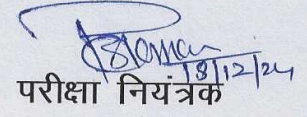 18/12/24
परीक्षा नियंत्रक